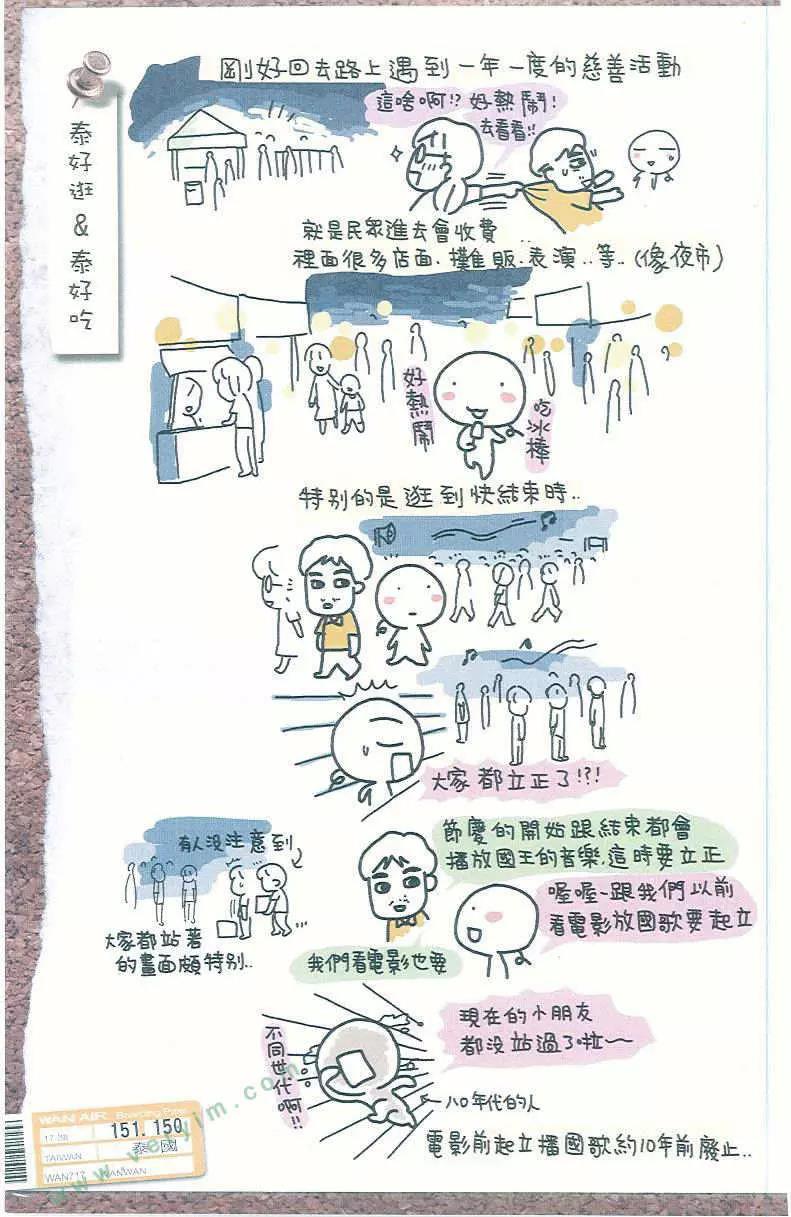 剛好回去路上遇到一年一度的慈善活動
這啥啊!? 好熱鬧!
去看看!!
泰好逛 & 泰好吃
就是民眾進去會收費
裡面很多店面.攤販.表演..等..(像夜市)
好熱鬧
吃冰棒
特別的是逛到快結束時..
大家都立正了!?!
節慶的開始跟結束都會
播放國王的音樂,這時要立正
有人沒注意到
喔喔~跟我們以前
看電影放國歌要起立
大家都站著
的畫面頗特別..
我們看電影也要
現在的小朋友
都沒站過了啦~~
不同世代啊!!
←八0年代的人
電影前起立播國歌約10年前廢止..
WAN AIR Boarding Pass
151.150
TAIWAN
泰國
WAN717
WANWAN
www.veryim.com